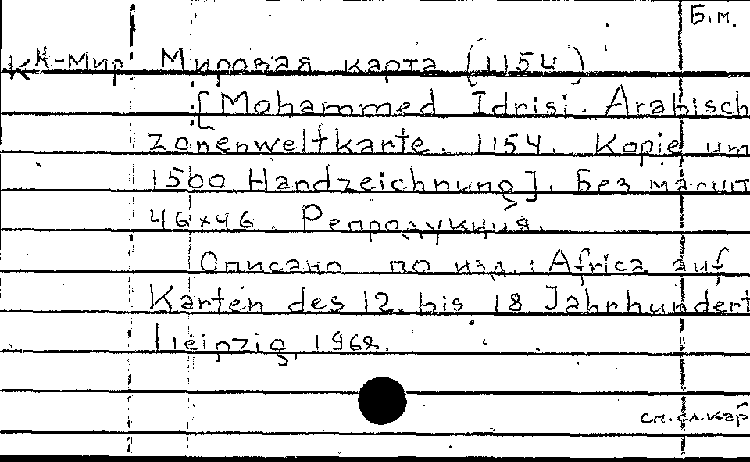 Б.м.
Кк-Мир Мировая карта (1154)
[Mohammed Idrisi. Arabisch
Zonenweltkarte. 1154. Kopie um
1500 Handzeichnung]. Без масшт
46×46. Репродукция.
Описано по изд.: Africa auf
Karten des 12. bis 18 Jahrhundert
Leipzig, 1968.
см. сл. кар